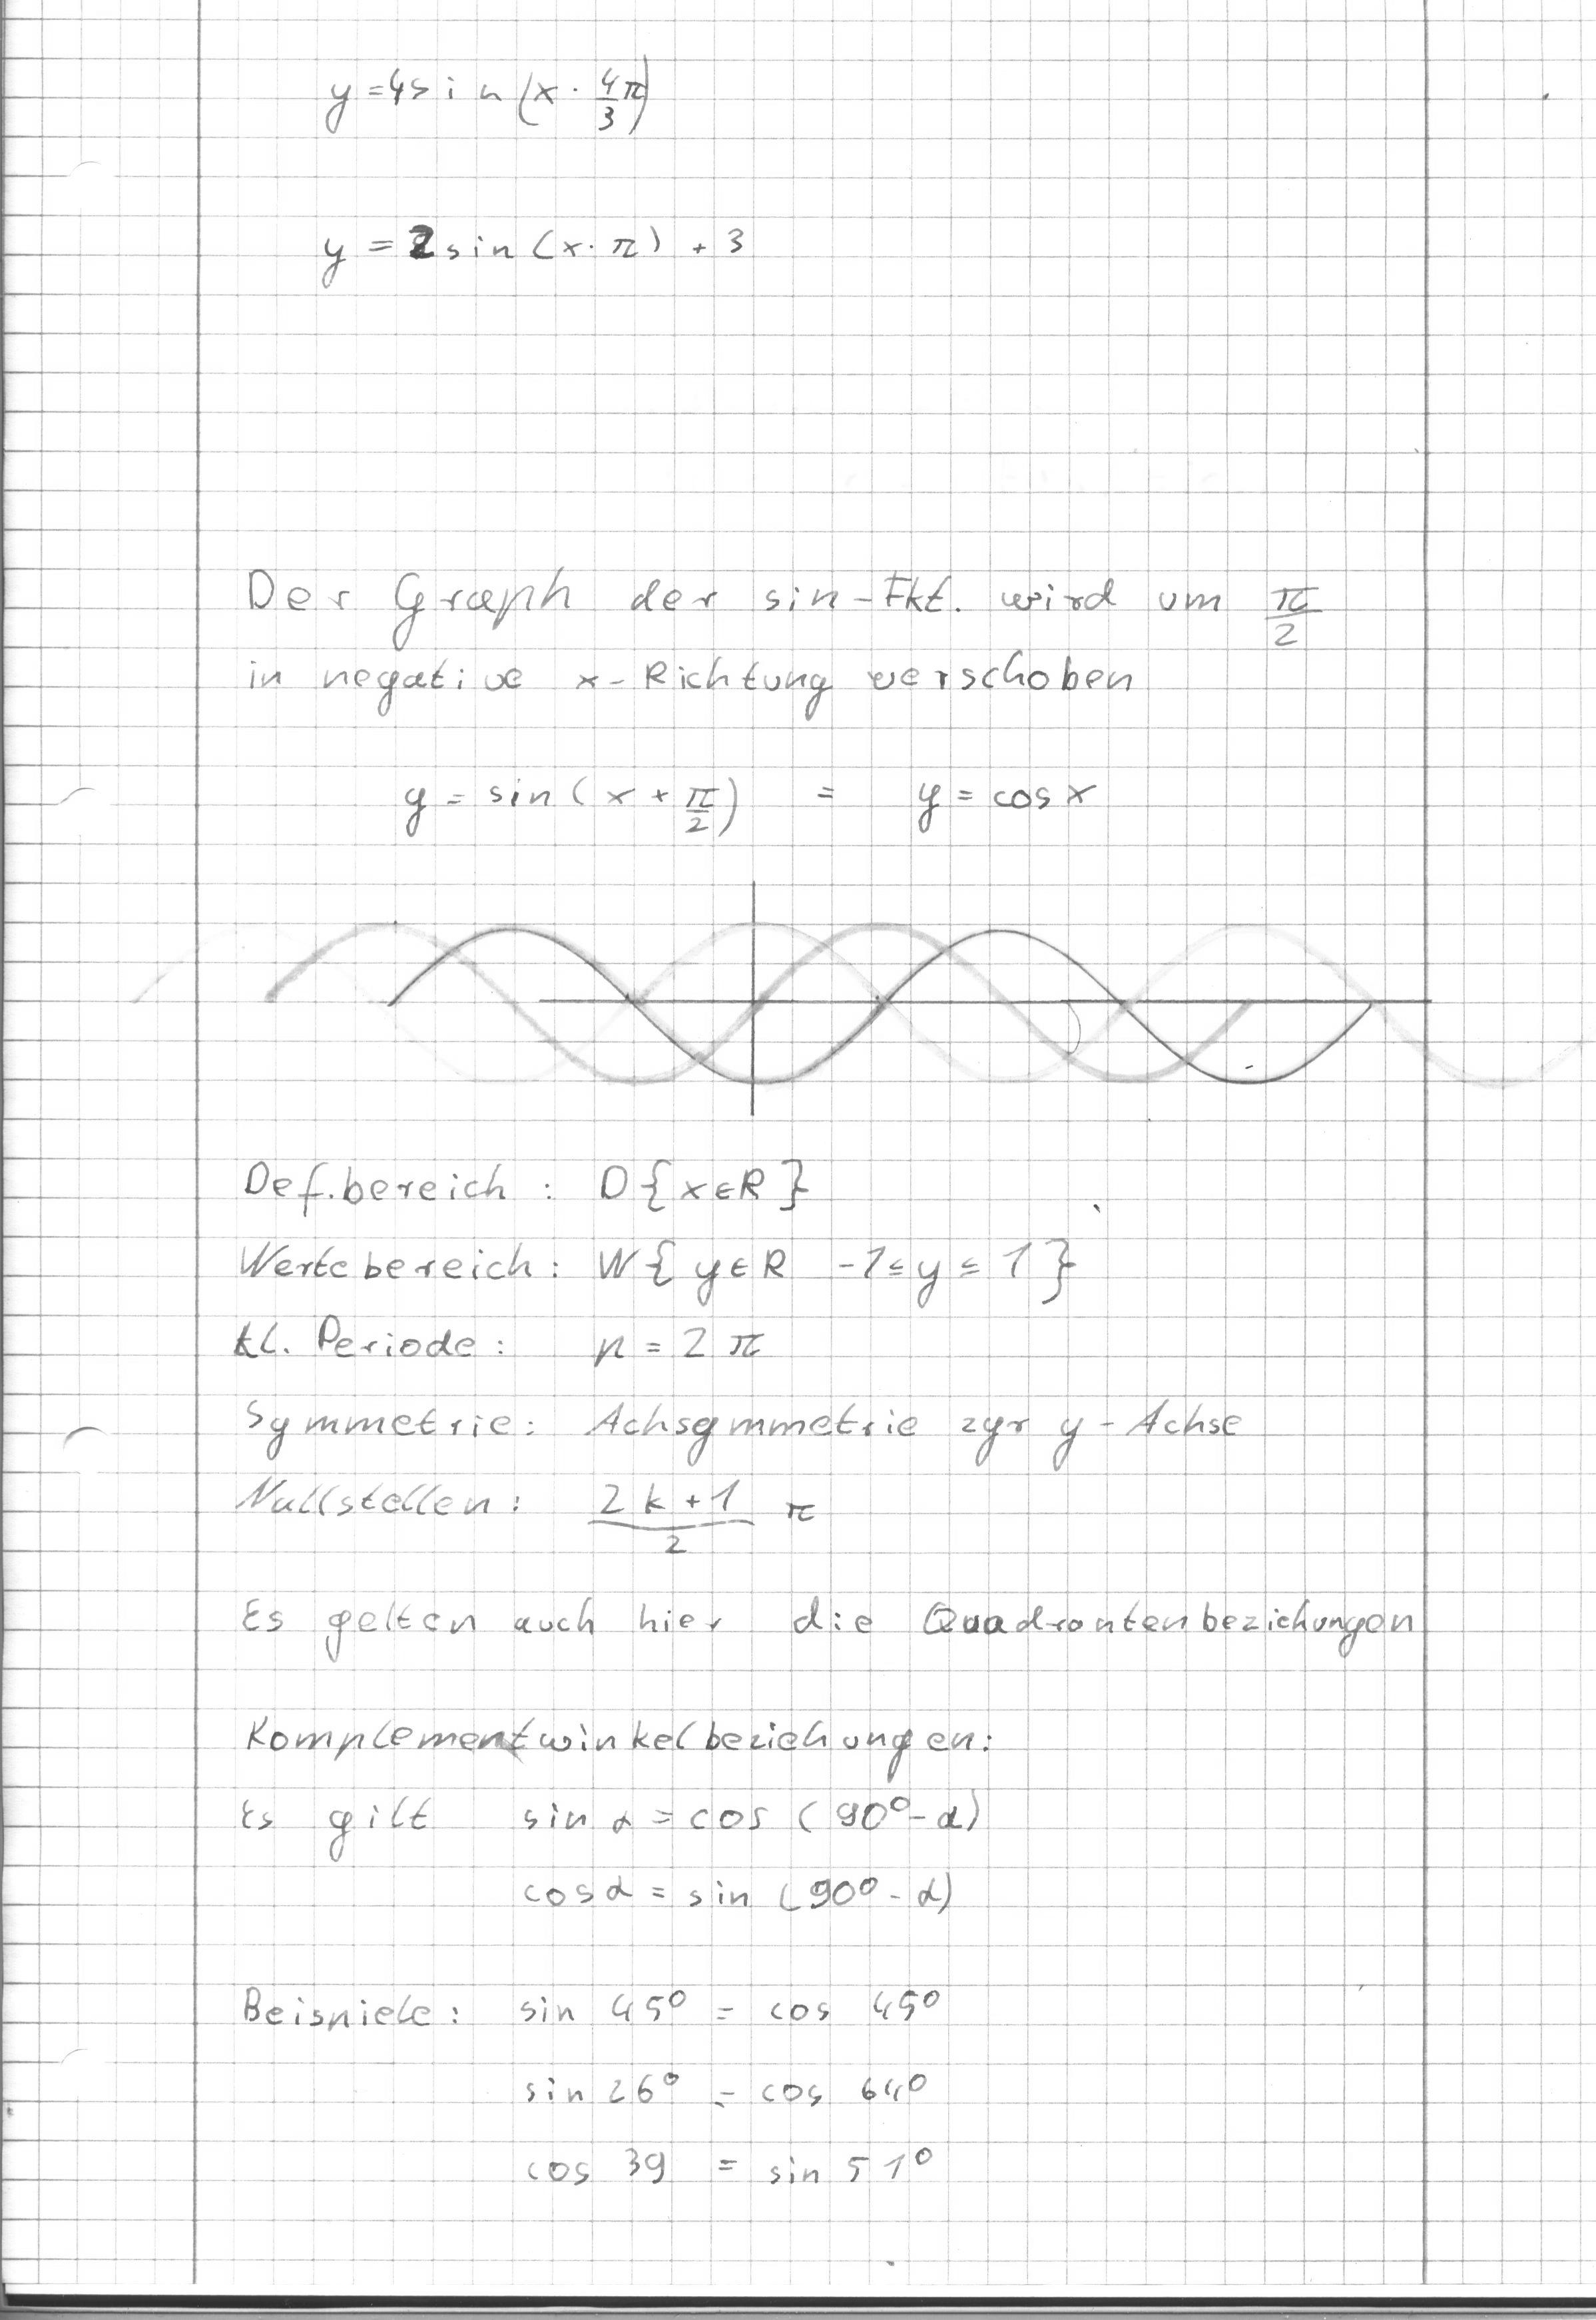 y = 4 sin (x · 4/3 π)
y = 2 sin (x · π) + 3
Der Graph der sin-Fkt. wird um π/2
in negative x-Richtung verschoben
y = sin (x + π/2) = y = cos x
Def.bereich : D{x∈R}
Wertebereich: W{y∈R -1≤y≤1}
kl. Periode: p = 2 π
Symmetrie: Achsymmetrie zyr y-Achse
Nullstellen: (2k+1)/2 π
Es gelten auch hier die Quadrantenbeziehungen
Komplementwinkelbeziehungen:
Es gilt sin α = cos (90°-α)
cos α = sin (90°-α)
Beispiele: sin 45° = cos 45°
sin 26° = cos 64°
cos 39 = sin 51°